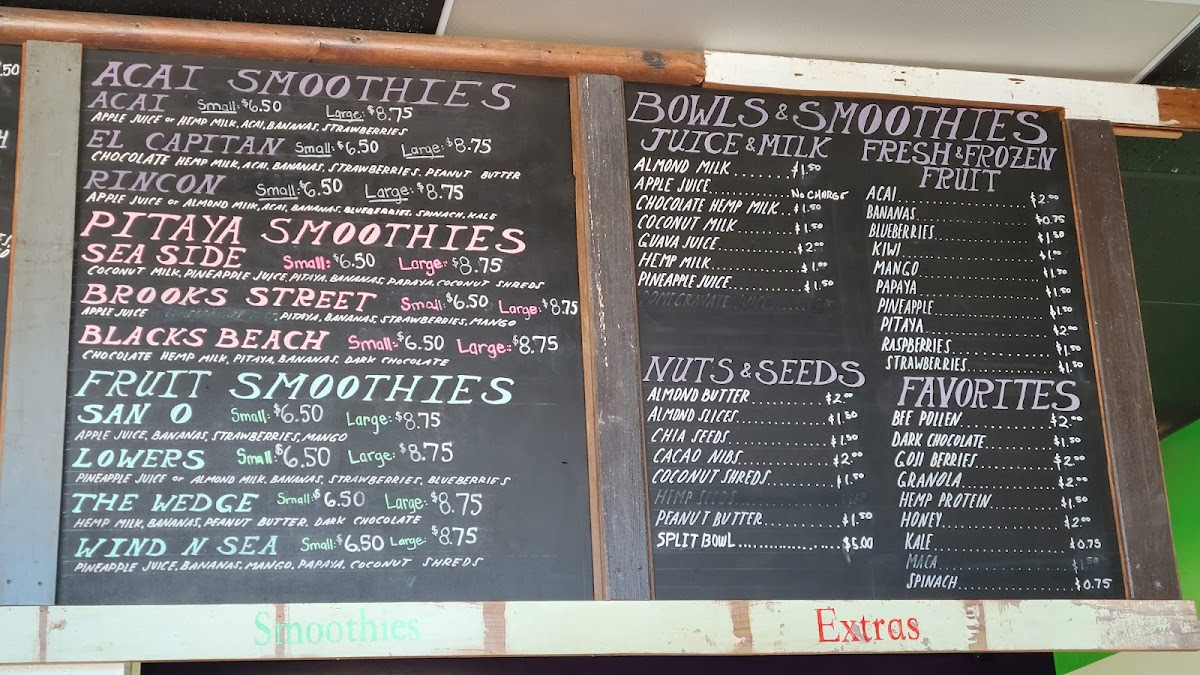 .50
ACAI SMOOTHIES
ACAI Small: $6.50 Large: $8.75
APPLE JUICE or HEMP MILK, ACAI, BANANAS, STRAWBERRIES
EL CAPITAN Small: $6.50 Large: $8.75
CHOCOLATE HEMP MILK, ACAI, BANANAS, STRAWBERRIES, PEANUT BUTTER
RINCON Small: $6.50 Large: $8.75
APPLE JUICE or ALMOND MILK, ACAI, BANANAS, BLUEBERRIES, SPINACH, KALE
PITAYA SMOOTHIES
SEA SIDE Small: $6.50 Large: $8.75
COCONUT MILK, PINEAPPLE JUICE, PITAYA, BANANAS, PAPAYA, COCONUT SHREDS
BROOKS STREET Small: $6.50 Large: $8.75
APPLE JUICE , PITAYA, BANANAS, STRAWBERRIES, MANGO
BLACKS BEACH Small: $6.50 Large: $8.75
CHOCOLATE HEMP MILK, PITAYA, BANANAS, DARK CHOCOLATE
FRUIT SMOOTHIES
SAN O Small: $6.50 Large: $8.75
APPLE JUICE, BANANAS, STRAWBERRIES, MANGO
LOWERS Small: $6.50 Large: $8.75
PINEAPPLE JUICE or ALMOND MILK, BANANAS, STRAWBERRIES, BLUEBERRIES
THE WEDGE Small: $6.50 Large: $8.75
HEMP MILK, BANANAS, PEANUT BUTTER, DARK CHOCOLATE
WIND N SEA Small: $6.50 Large: $8.75
PINEAPPLE JUICE, BANANAS, MANGO, PAPAYA, COCONUT SHREDS
Smoothies
BOWLS & SMOOTHIES
JUICE & MILK
ALMOND MILK........$1.50
APPLE JUICE........No CHARGE
CHOCOLATE HEMP MILK..$1.50
COCONUT MILK........$1.50
GUAVA JUICE........$2.00
HEMP MILK........$1.00
PINEAPPLE JUICE........$1.50
POMEGRANATE JUICE
NUTS & SEEDS
ALMOND BUTTER........$2.00
ALMOND SLICES........$1.50
CHIA SEEDS........$1.50
CACAO NIBS........$2.00
COCONUT SHREDS........$1.50
HEMP SEEDS
PEANUT BUTTER........$1.50
SPLIT BOWL........$5.00
FRESH & FROZEN
FRUIT
ACAI........$2.00
BANANAS........$0.75
BLUEBERRIES........$1.50
KIWI........$1.00
MANGO........$1.50
PAPAYA........$1.50
PINEAPPLE........$1.50
PITAYA........$2.00
RASPBERRIES........$1.50
STRAWBERRIES........$1.50
FAVORITES
BEE POLLEN........$2.00
DARK CHOCOLATE........$1.50
GOJI BERRIES........$2.00
GRANOLA........$2.00
HEMP PROTEIN........$1.50
HONEY........$2.00
KALE........$0.75
MACA........$1.50
SPINACH........$0.75
Extras